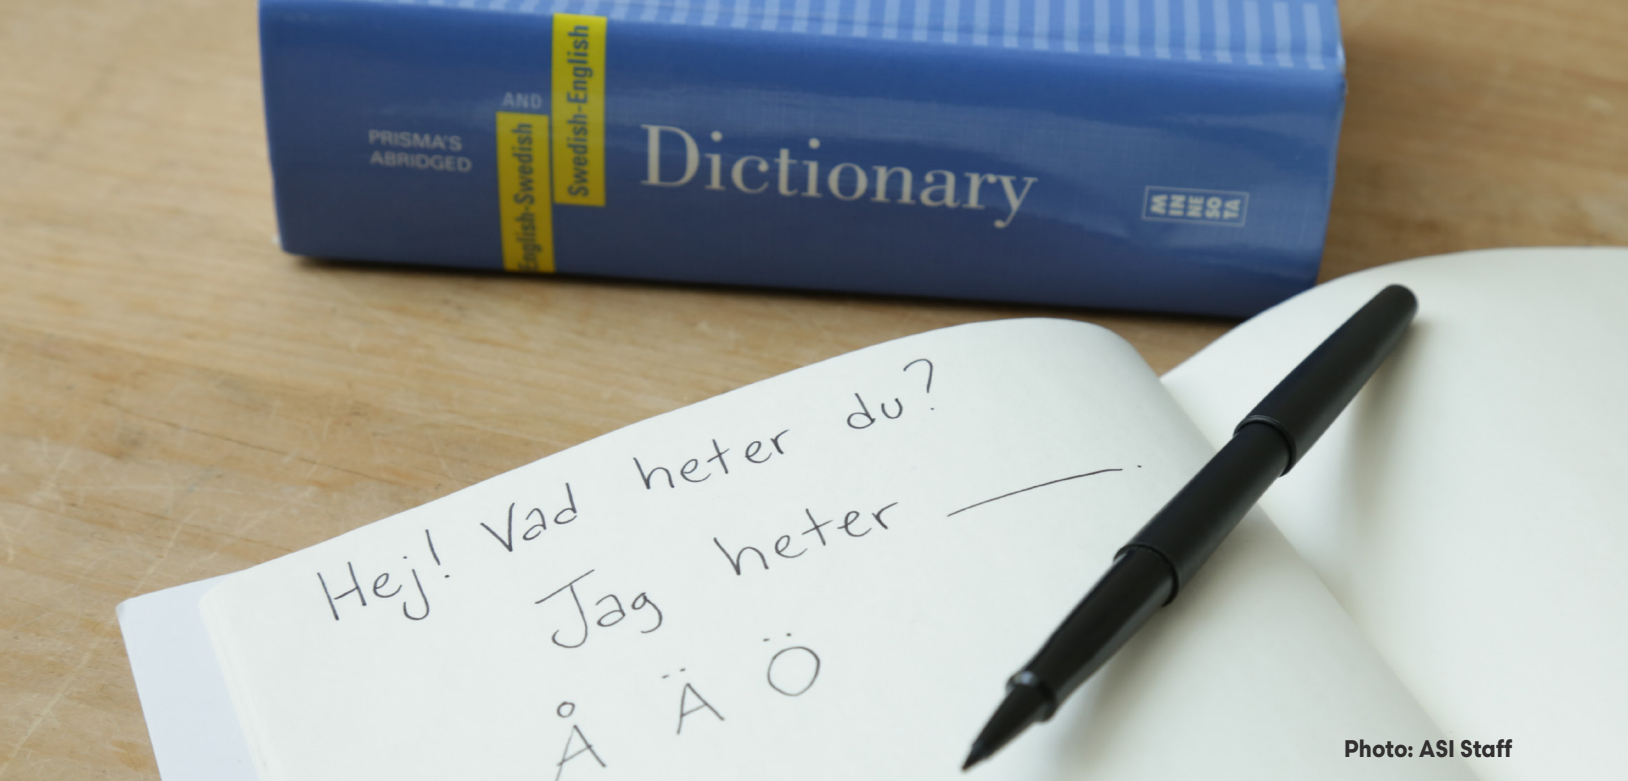 PRISMA'S
ABRIDGED
English-Swedish
AND
Swedish-English
Dictionary
MINNESOTA
Hej! Vad heter du?
Jag heter ______.
Å Ä Ö
Photo: ASI Staff